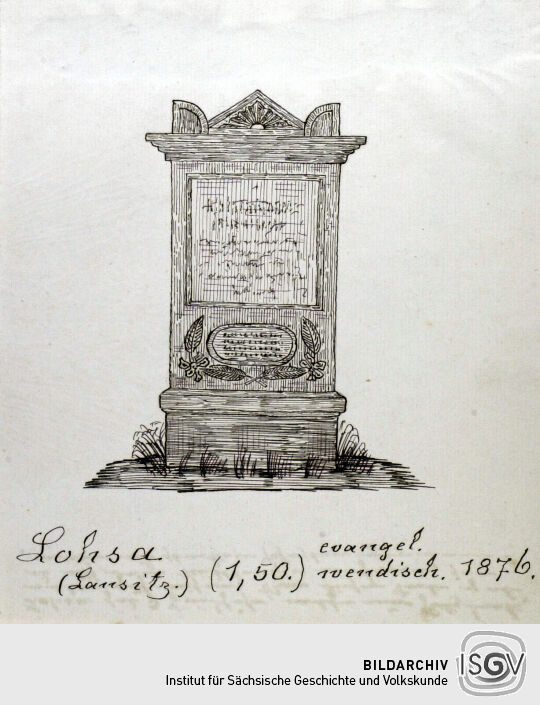 Lohsa
(Lausitz.) (1,50.) evangel.
wendisch. 1876.
BILDARCHIV
Institut für Sächsische Geschichte und Volkskunde
ISGV